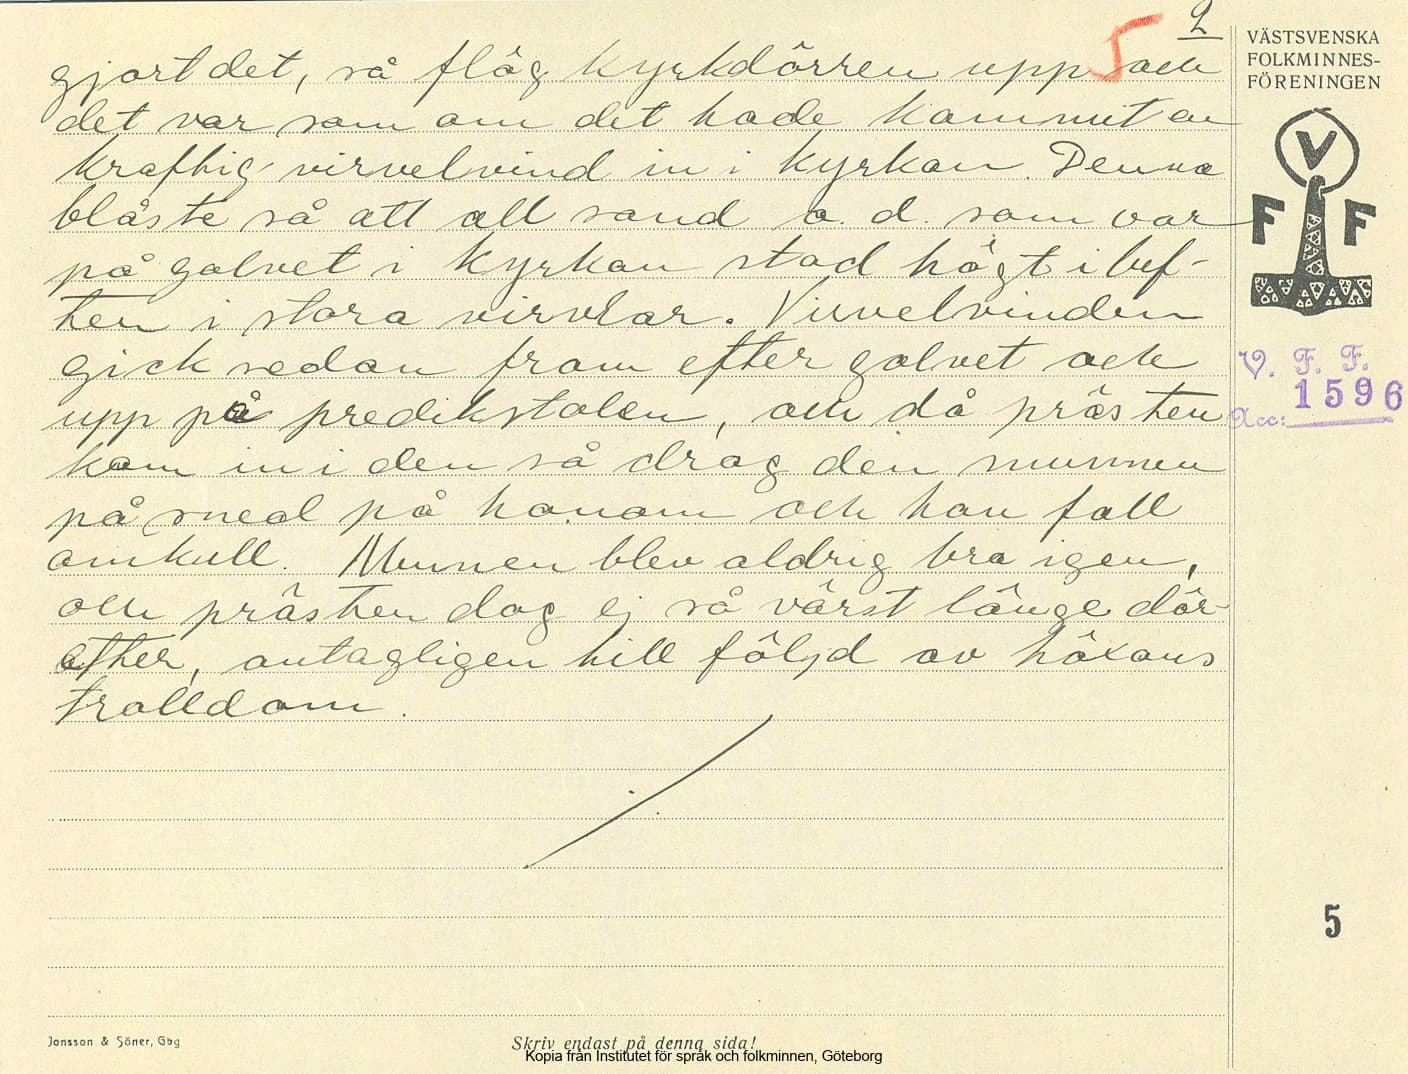 2
5
gjort det, så flög kyrkdörren upp och
det var som om det hade kommit en
kraftig virvelvind in i kyrkan. Denna
blåste så att all sand o. d. som var
på golvet i kyrkan stod högt i luf-
ten i stora virvlar. Virvelvinden
gick sedan fram efter golvet och
upp på predikstolen, och då prästen
kom in i den så drog den munnen
på sned på honom och han föll
omkull. Munnen blev aldrig bra igen,
och prästen dog ej så värst länge där-
efter, antagligen till följd av häxans
trolldom.
VÄSTSVENSKA
FOLKMINNES-
FÖRENINGEN
V
F F
V. F. F.
1596
Acc:
5
Jonsson & Söner, Gbg
Skriv endast på denna sida!
Kopia från Institutet för språk och folkminnen, Göteborg